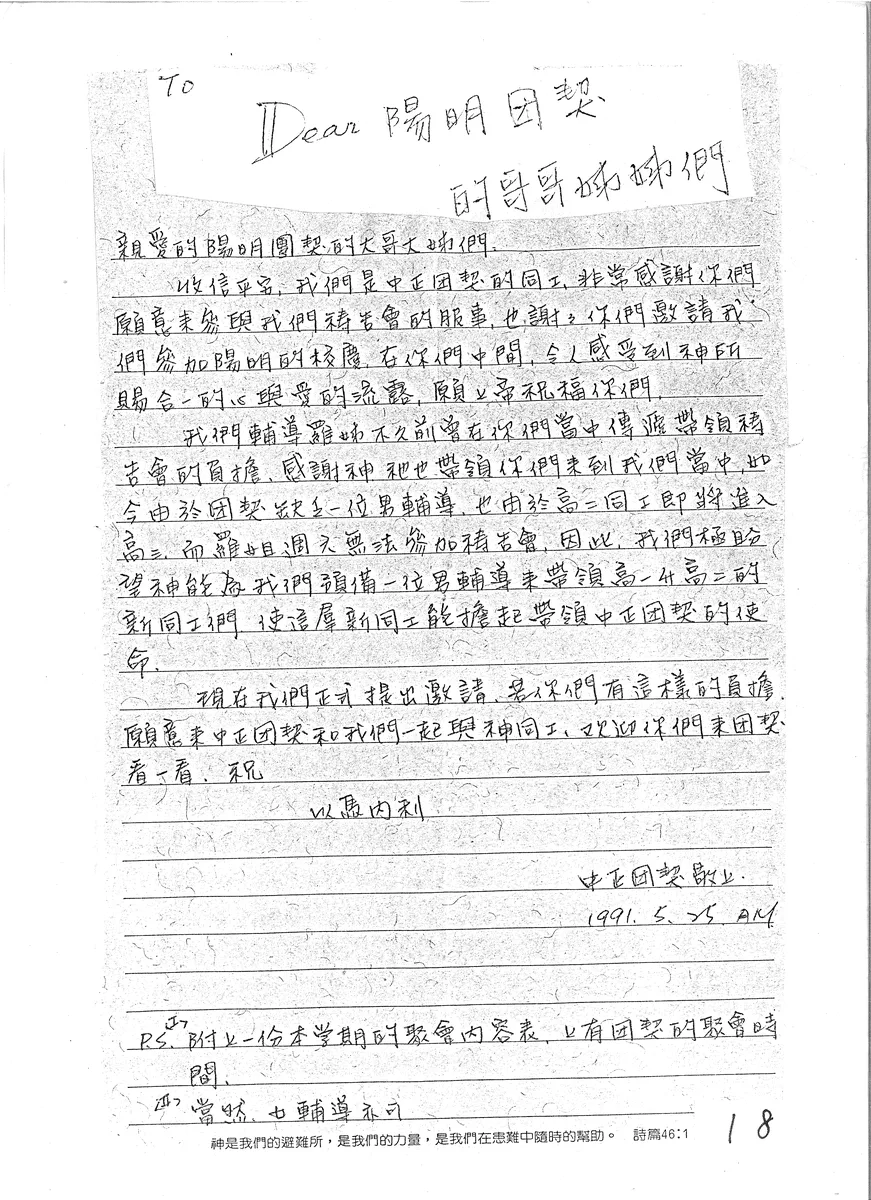 To
Dear 陽明团契
的哥哥姊姊們
親愛的陽明團契的大哥大姊們.
收信平安, 我們是中正团契的同工, 非常感謝你們
願意来參與我們禱告會的服事, 也謝々你們邀請我
們參加陽明的校慶, 在你們中間, 令人感受到神所
賜合一的心與愛的流露, 願上帝祝福你們.
我們輔導羅姊不久前曾在你們當中傳遞帶領禱
告會的負擔, 感謝神祂也帶領你們来到我們當中, 如
今由於团契缺乏一位男輔導, 也由於高二同工即將進入
高三, 而羅姐週六無法參加禱告會, 因此, 我們極盼
望神能為我們預備一位男輔導来帶領高一升高二的
新同工們, 使這羣新同工能擔起帶領中正团契的使
命.
現在我們正式提出邀請, 若你們有這樣的負擔,
願意来中正团契和我們一起與神同工, 欢迎你們来团契
看一看. 祝
以馬內利
中正团契敬上.
1991. 5. 25. AM
P.S. <I> 附上一份本学期的聚會內容表, 上有团契的聚會時
間.
<II> 當然, 女輔導亦可
神是我們的避難所，是我們的力量，是我們在患難中隨時的幫助。 詩篇46:1
18